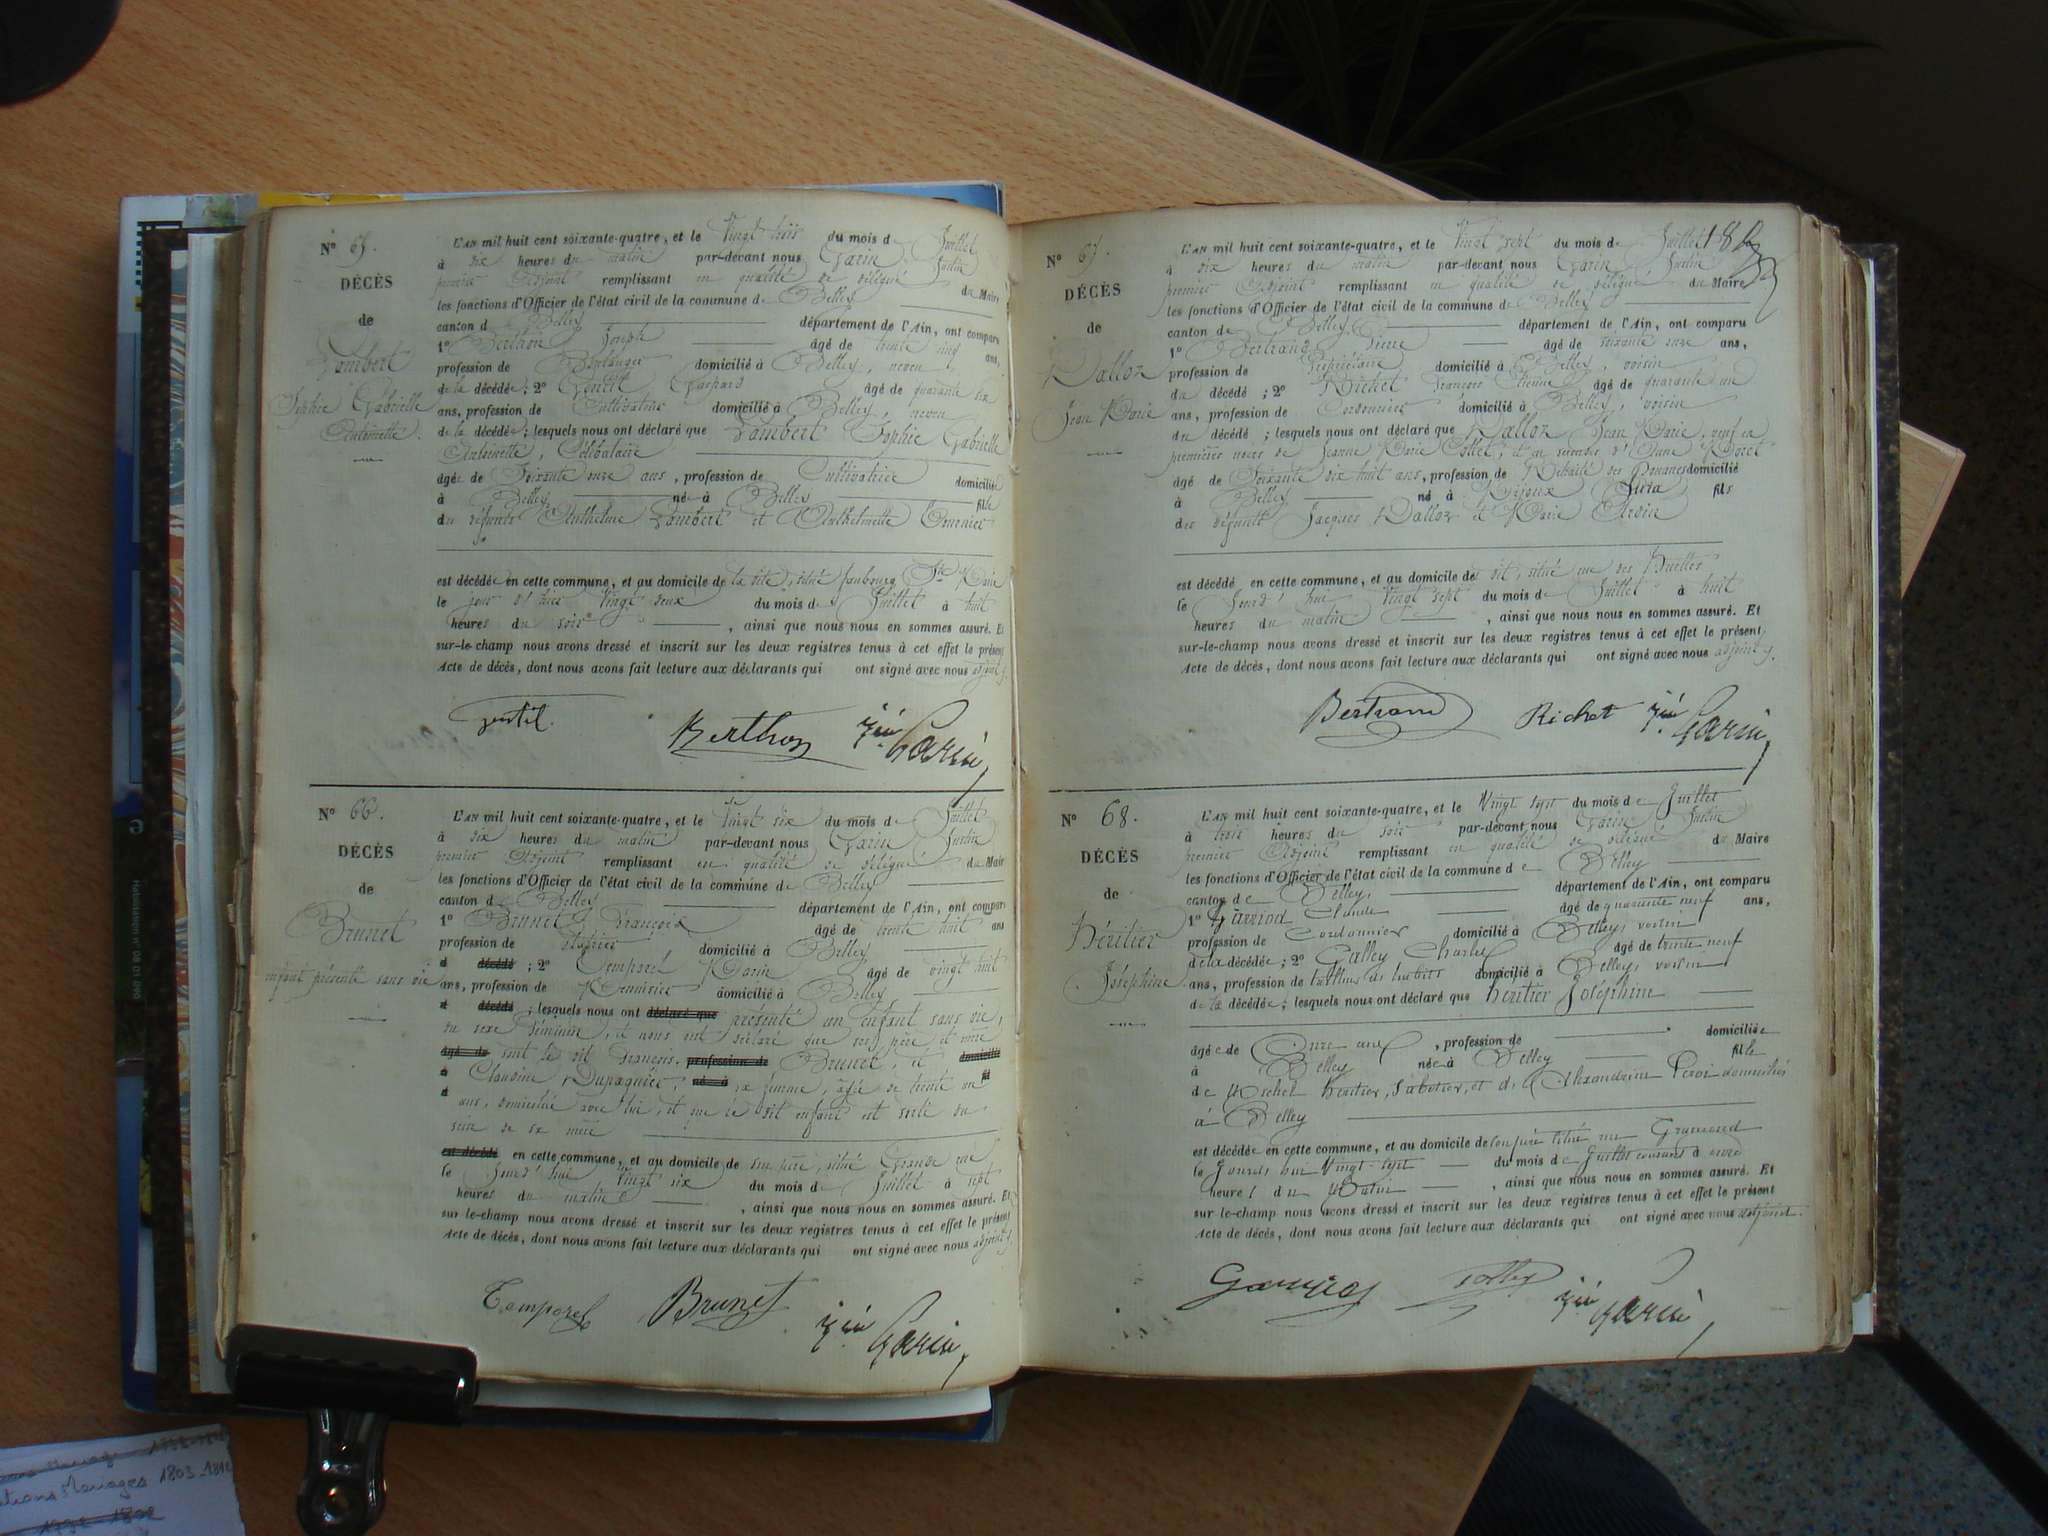 N° 65.
DÉCÈS
de
Lambert
Sophie Gabrielle
Antoinette.
L'AN mil huit cent soixante-quatre, et le Vingt trois du mois de Juillet
à dix heures du matin par-devant nous Garin Justin
premier Adjoint remplissant en qualité de délégué du Maire
les fonctions d'Officier de l'état civil de la commune de Belley
canton de Belley département de l'Ain, ont comparu
1° Berthon Joseph âgé de trente cinq ans,
profession de Boulanger domicilié à Belley, neveu
de la décédée ; 2° Gentil Gaspard âgé de quarante six
ans, profession de Cultivateur domicilié à Belley, neveu
de la décédée ; lesquels nous ont déclaré que Lambert Sophie Gabrielle
Antoinette, Célibataire
âgée de Soixante onze ans, profession de Cultivatrice domiciliée
à Belley née à Belley fille
des défunts Anthelme Lambert et Anthelmette
est décédée en cette commune, et au domicile de la dite, situé faubourg Ste Marie
le jour d'hier Vingt deux du mois de Juillet à huit
heures du soir , ainsi que nous nous en sommes assuré. Et
sur-le-champ nous avons dressé et inscrit sur les deux registres tenus à cet effet le présent
Acte de décès, dont nous avons fait lecture aux déclarants qui ont signé avec nous adjoint
gentil. Berthon Garin
N° 66.
DÉCÈS
de
Brunet
enfant présenté sans vie
L'AN mil huit cent soixante-quatre, et le Vingt six du mois de Juillet
à dix heures du matin par-devant nous Garin Justin
premier Adjoint remplissant en qualité de délégué du Maire
les fonctions d'Officier de l'état civil de la commune de Belley
canton de Belley département de l'Ain, ont comparu
1° Brunet François âgé de trente huit ans
profession de domicilié à Belley
d décédé ; 2° Temporel Marin âgé de vingt huit
ans, profession de Menuisier domicilié à Belley
d décédé ; lesquels nous ont déclaré que présenté un enfant sans vie,
du sexe féminin, et nous ont déclaré que son père et mère
âgé de sont le dit François, profession de Brunet, et domicilié
à Claudine Dupasquier, né à sa femme, âgée de trente un fil
d ans, domiciliée avec lui, et que le dit enfant est sorti du
sein de sa mère
est décédé en cette commune, et au domicile de son père, situé Grande rue
le Jourd'hui Vingt six du mois de Juillet à sept
heures du matin , ainsi que nous nous en sommes assuré. Et
sur-le-champ nous avons dressé et inscrit sur les deux registres tenus à cet effet le présent
Acte de décès, dont nous avons fait lecture aux déclarants qui ont signé avec nous adjoint
Temporel Brunet Garin
N° 67.
DÉCÈS
de
Dalloz
Jean Marie
L'AN mil huit cent soixante-quatre, et le Vingt sept du mois de Juillet
à dix heures du matin par-devant nous Garin Justin
premier Adjoint remplissant en qualité de délégué du Maire
les fonctions d'Officier de l'état civil de la commune de Belley
canton de Belley département de l'Ain, ont comparu
1° Bertrand Pierre âgé de soixante onze ans,
profession de Propriétaire domicilié à Belley, voisin
du décédé ; 2° Richet François Etienne âgé de quarante un
ans, profession de Cordonnier domicilié à Belley, voisin
du décédé ; lesquels nous ont déclaré que Dalloz Jean Marie, veuf en
premières noces de Jeanne Marie et en secondes d'Anne Morel
âgé de Soixante dix huit ans, profession de Retraité des Douanes domicilié
à Belley né à Jura fils
des défunts Jacques Dalloz et Marie
est décédé en cette commune, et au domicile de dit, situé rue des
le Jourd'hui Vingt sept du mois de Juillet à huit
heures du matin , ainsi que nous nous en sommes assuré. Et
sur-le-champ nous avons dressé et inscrit sur les deux registres tenus à cet effet le présent
Acte de décès, dont nous avons fait lecture aux déclarants qui ont signé avec nous adjoint
Bertrand Richet Garin
N° 68.
DÉCÈS
de
Héritier
Joséphine
L'AN mil huit cent soixante-quatre, et le Vingt sept du mois de Juillet
à trois heures du soir par-devant nous Garin Justin
premier Adjoint remplissant en qualité de délégué du Maire
les fonctions d'Officier de l'état civil de la commune de Belley
canton de Belley, département de l'Ain, ont comparu
1° Claude âgé de quarante neuf ans,
profession de Cordonnier domicilié à Belley, voisin
de la décédée ; 2° Galley Charles âgé de trente neuf
ans, profession de tailleur de domicilié à Belley, voisin
de la décédée ; lesquels nous ont déclaré que héritier Joséphine
âgée de Onze ans , profession de domiciliée
à Belley née à Belley fille
de Michel héritier, Sabotier, et de Alexandrine domiciliés
à Belley
est décédée en cette commune, et au domicile de son père situé rue Grammond
le Jourd'hui Vingt-sept du mois de Juillet courant à onze
heures du Matin , ainsi que nous nous en sommes assuré. Et
sur-le-champ nous avons dressé et inscrit sur les deux registres tenus à cet effet le présent
Acte de décès, dont nous avons fait lecture aux déclarants qui ont signé avec nous adjoint.
Galley Garin
Mariages 1803-1812